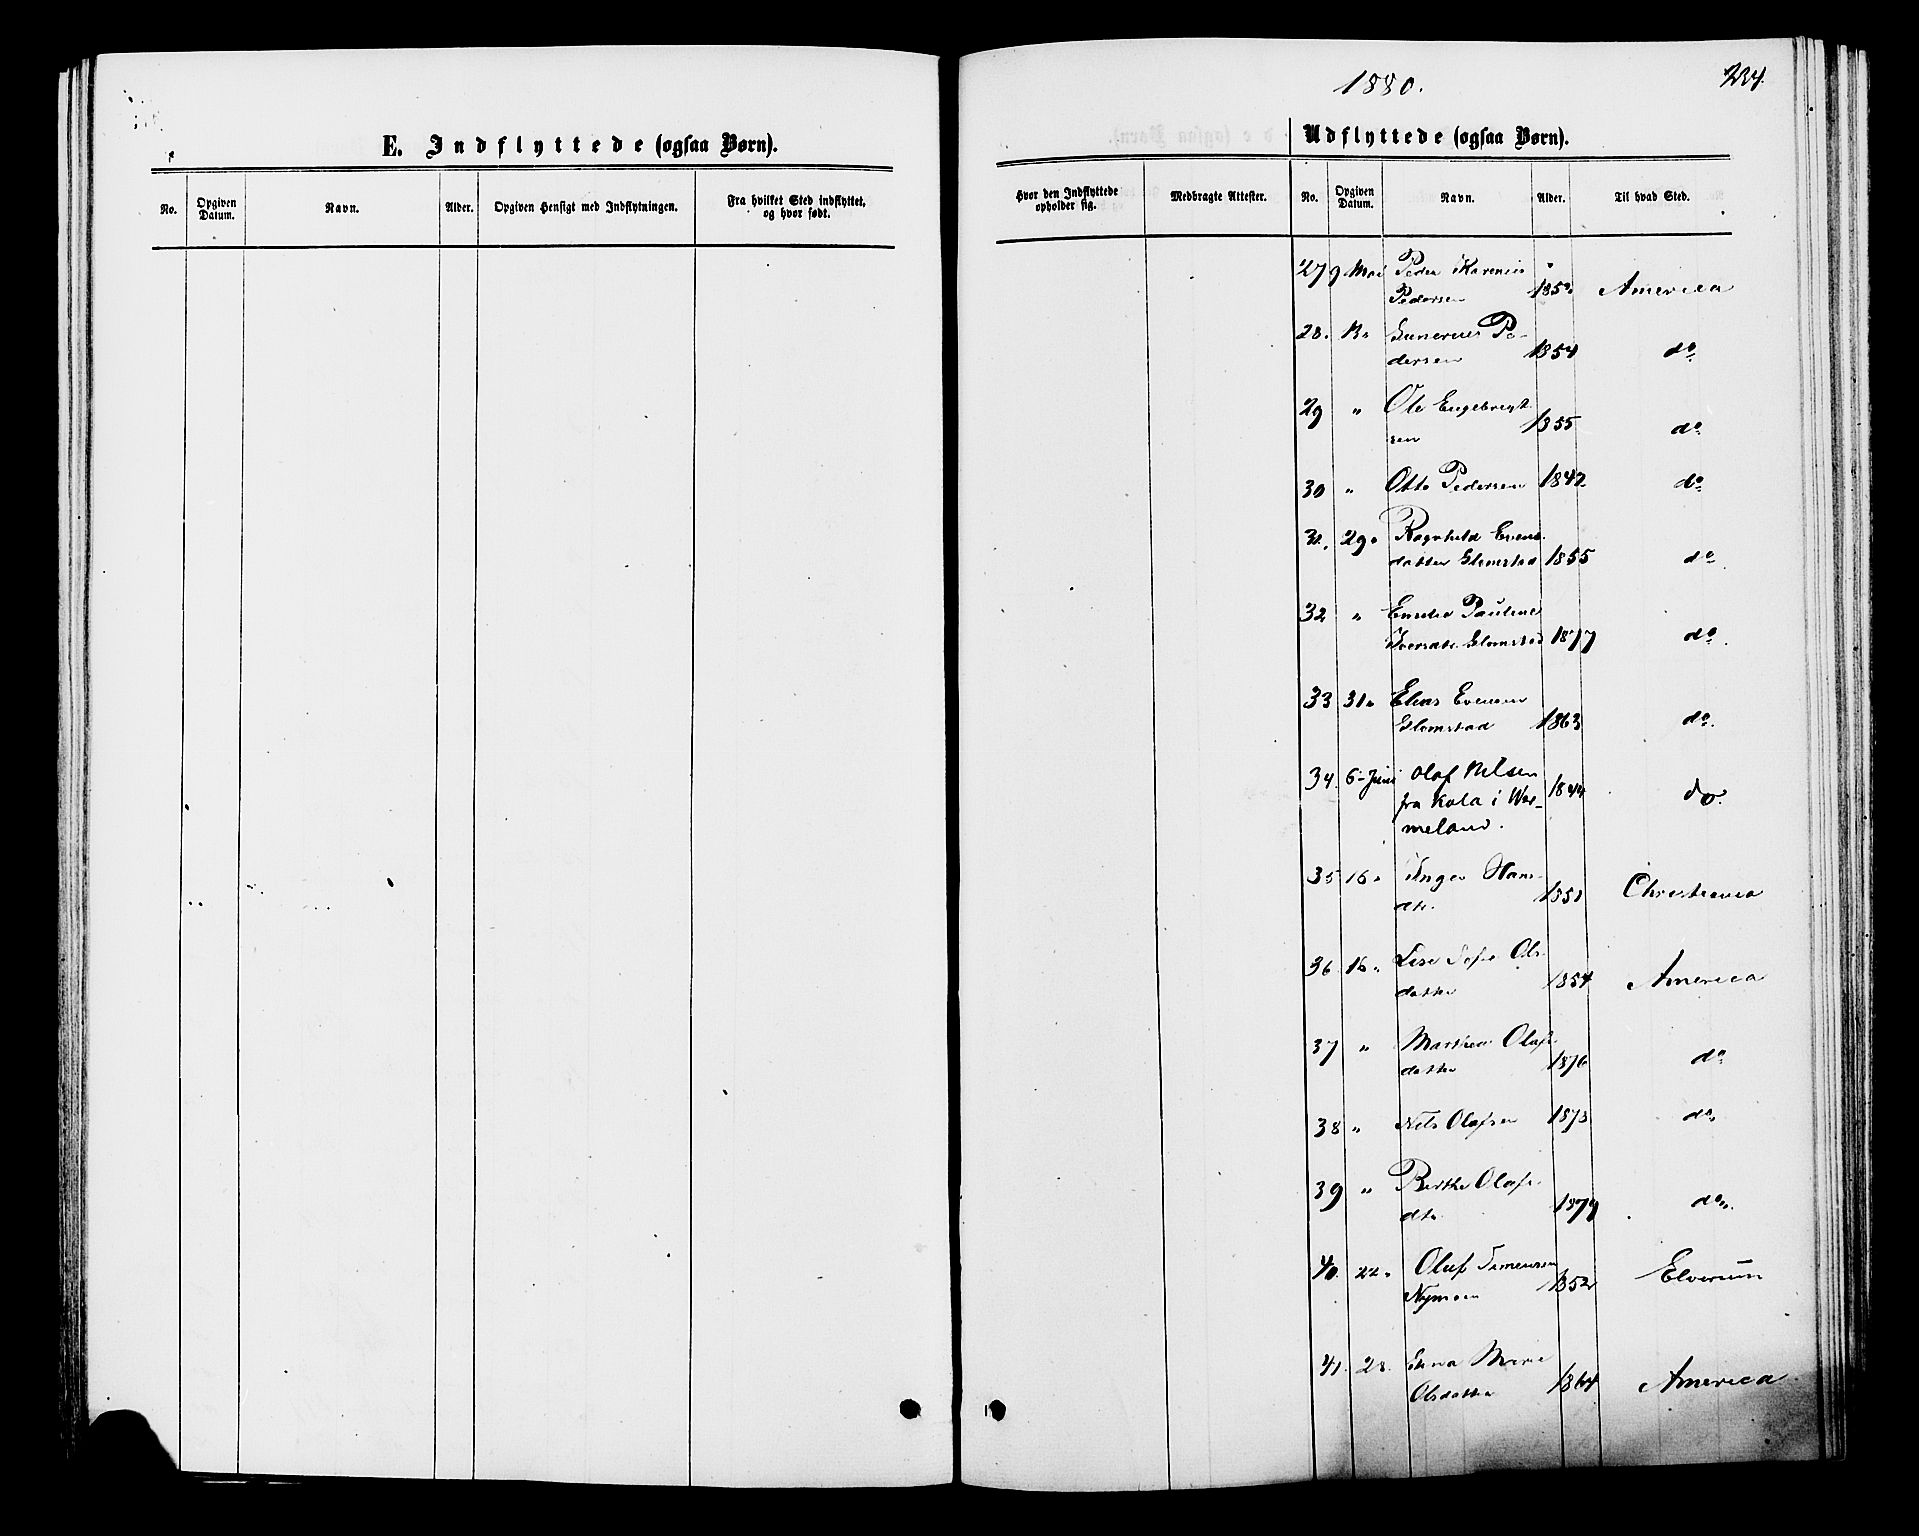 1880.
234.
E. Indflyttede (ogsaa Børn).
Udflyttede (ogsaa Børn).
No.
Opgiven Datum.
Navn.
Alder.
Opgiven Hensigt med Indflytningen.
Fra hvilket Sted indflyttet, og hvor født.
Hvor den Indflyttede opholder sig.
Medbragte Attester.
No.
Opgiven Datum.
Navn.
Alder.
Til hvad Sted.
27 9 Mai Peder Karenius
Pedersen America
28. Pe-
dersen 1854 do
29 " Ole Engebregt
sen 1855 do
30 " Otto Pedersen 1842 do
31. 29 " Ragnhild Evens
datter Glomstad 1855 do
32 " Emelie Pauline
Iversdtr Glomstad 1877 do
33 31 " Elias Evensen
Glomstad 1863 do.
34. 6-Juni Olaf Nilsen 1844 do.
fra Kola i Wer-
meland.
35 16 " Inger Hans
dtr. Christiania
36 16 " Lise Sofie Ols
datter 1854 America
37 " Marthea Olafs
datter 1876 do
38 " Nils Olafsen 1873 do
39 " Berthe Olafs
dtr. 1879 do
40. 22 " Oluf Simensen
Nymoen 1852 Elverum
41. 28. Marie
Olsdatter 1864 America.